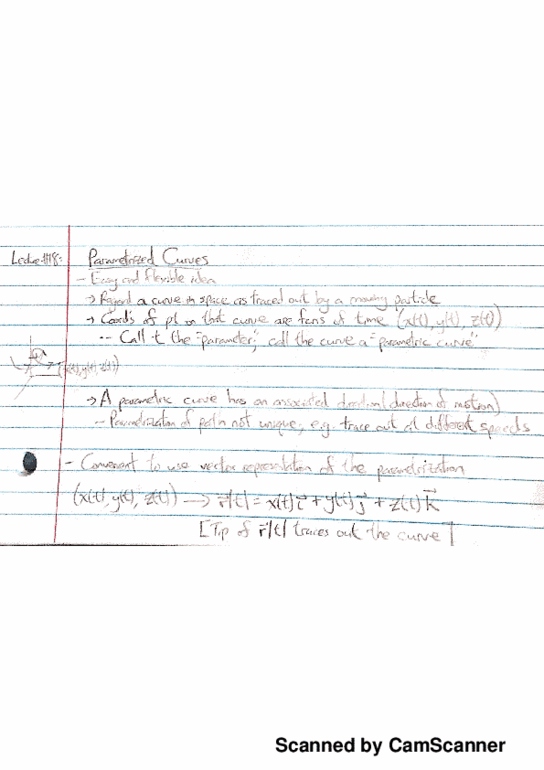 Lecture #18: Parametrized Curves
- Easy and flexible idea
→ Regard a curve in space as traced out by a moving particle
→ Coords of pt on that curve are fcns of time (x(t), y(t), z(t))
-- Call t the "parameter", call the curve a "parametric curve"
(x(t), y(t), z(t))
→ A parametric curve has an associated direction (direction of motion)
- Parametrization of path not unique, e.g. trace out at different speeds
- Convenient to use vector representation of the parametrization
(x(t), y(t), z(t)) → r⃗(t) = x(t)i⃗ + y(t)j⃗ + z(t)k⃗
[Tip of r⃗(t) traces out the curve]
Scanned by CamScanner